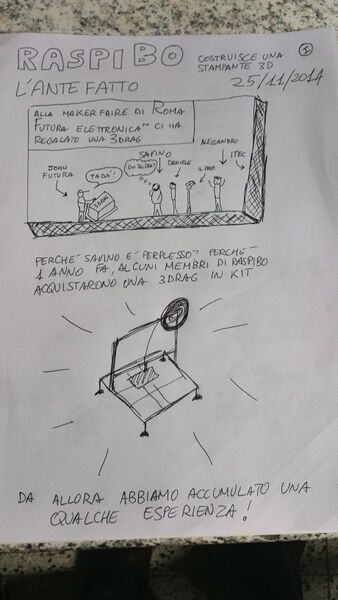 RASPIBO
COSTRUISCE UNA
STAMPANTE 3D
1
25/11/2014
L'ANTEFATTO
ALLA MAKERFAIRE DI ROMA
FUTURA ELETTRONICA™ CI HA
REGALATO UNA 3DRAG
JOHN
FUTURA
TADA'!
3DRAG
UN'ALTRA?
SAVINO
DANIELE
IL PROF.
ALESSANDRO
ITEC
PERCHÉ SAVINO È PERPLESSO? PERCHÉ
1 ANNO FA, ALCUNI MEMBRI DI RASPIBO
ACQUISTARONO UNA 3DRAG IN KIT
DA ALLORA ABBIAMO ACCUMULATO UNA
QUALCHE ESPERIENZA!